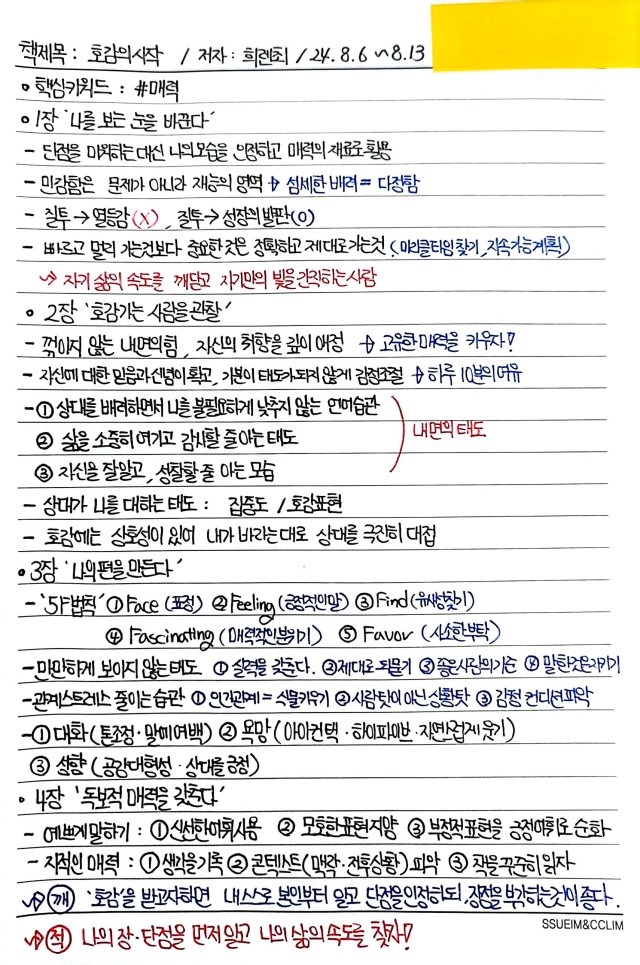 책제목 : 호감의시작 / 저자 : 희렌최 / 24.8.6 ~8.13
◦ 핵심키워드 : #매력
◦ 1장 '나를 보는 눈을 바꾼다'
- 단점을 미워하는 대신 나의모습을 인정하고 매력의 재료로 활용
- 민감함은 문제가 아니라 재능의 영역 → 섬세한 배려 = 다정함
- 질투 → 열등감(X), 질투 → 성장의 발판(O)
- 빠르고 멀리 가는것보다 중요한 것은 정확하고 제대로가는것 (미라클타임 찾기, 지속가능계획)
→ 자기 삶의 속도를 깨닫고 자기만의 빛을 간직하는사람
◦ 2장 '호감가는 사람을 관찰'
- 꺾이지 않는 내면의힘, 자신의 취향을 깊이 애정 → 고유한 매력을 키우자!
- 자신에 대한 믿음과 신념이 확고, 기분이 태도가되지 않게 감정조절 → 하루 10분의 여유
- ① 상대를 배려하면서 나를 불필요하게 낮추지 않는 언어습관
② 삶을 소중히 여기고 감사할 줄 아는 태도
내면의 태도
③ 자신을 잘알고, 성찰할 줄 아는 모습
- 상대가 나를 대하는 태도 : 집중도 / 호감표현
- 호감에는 상호성이 있어 내가 바라는대로 상대를 극진히 대접
• 3장 '나의 편을 만든다'
- '5F법칙' ① Face (표정) ② Feeling (긍정적인말) ③ Find (유사성찾기)
④ Fascinating (매력적인분위기) ⑤ Favor (사소한부탁)
- 만만하게 보이지 않는 태도 ① 실력을 갖춘다. ② 제대로 되묻기 ③ 좋은사람의기준 ④ 말한것은지키기
- 관계스트레스 줄이는 습관 ① 인간관계 = 식물키우기 ② 사람탓이 아닌 상황탓 ③ 감정 컨디션파악
- ① 대화 (톤조정 · 말에여백) ② 욕망 (아이컨택 · 하이파이브 · 자연스럽게 웃기)
③ (공감대형성 · 상대를 긍정)
◦ 4장 '독보적 매력을 갖춘다'
- 예쁘게말하기 : ① 신선한어휘사용 ② 모호한표현지양 ③ 부정적표현을 긍정어휘로 순화
- 지적인 매력 : ① 생각을기록 ② 콘텍스트 (맥락 · 전후상황) 파악 ③ 책을꾸준히 읽자
→ 깨 '호감'을 받고자하면 내 스스로 본인부터 알고 단점을인정하되, 장점을 부각하는것이 좋다.
SSUEIM&CCLIM
→ 적 나의 장·단점을 먼저 알고 나의 삶의 속도를 찾자!